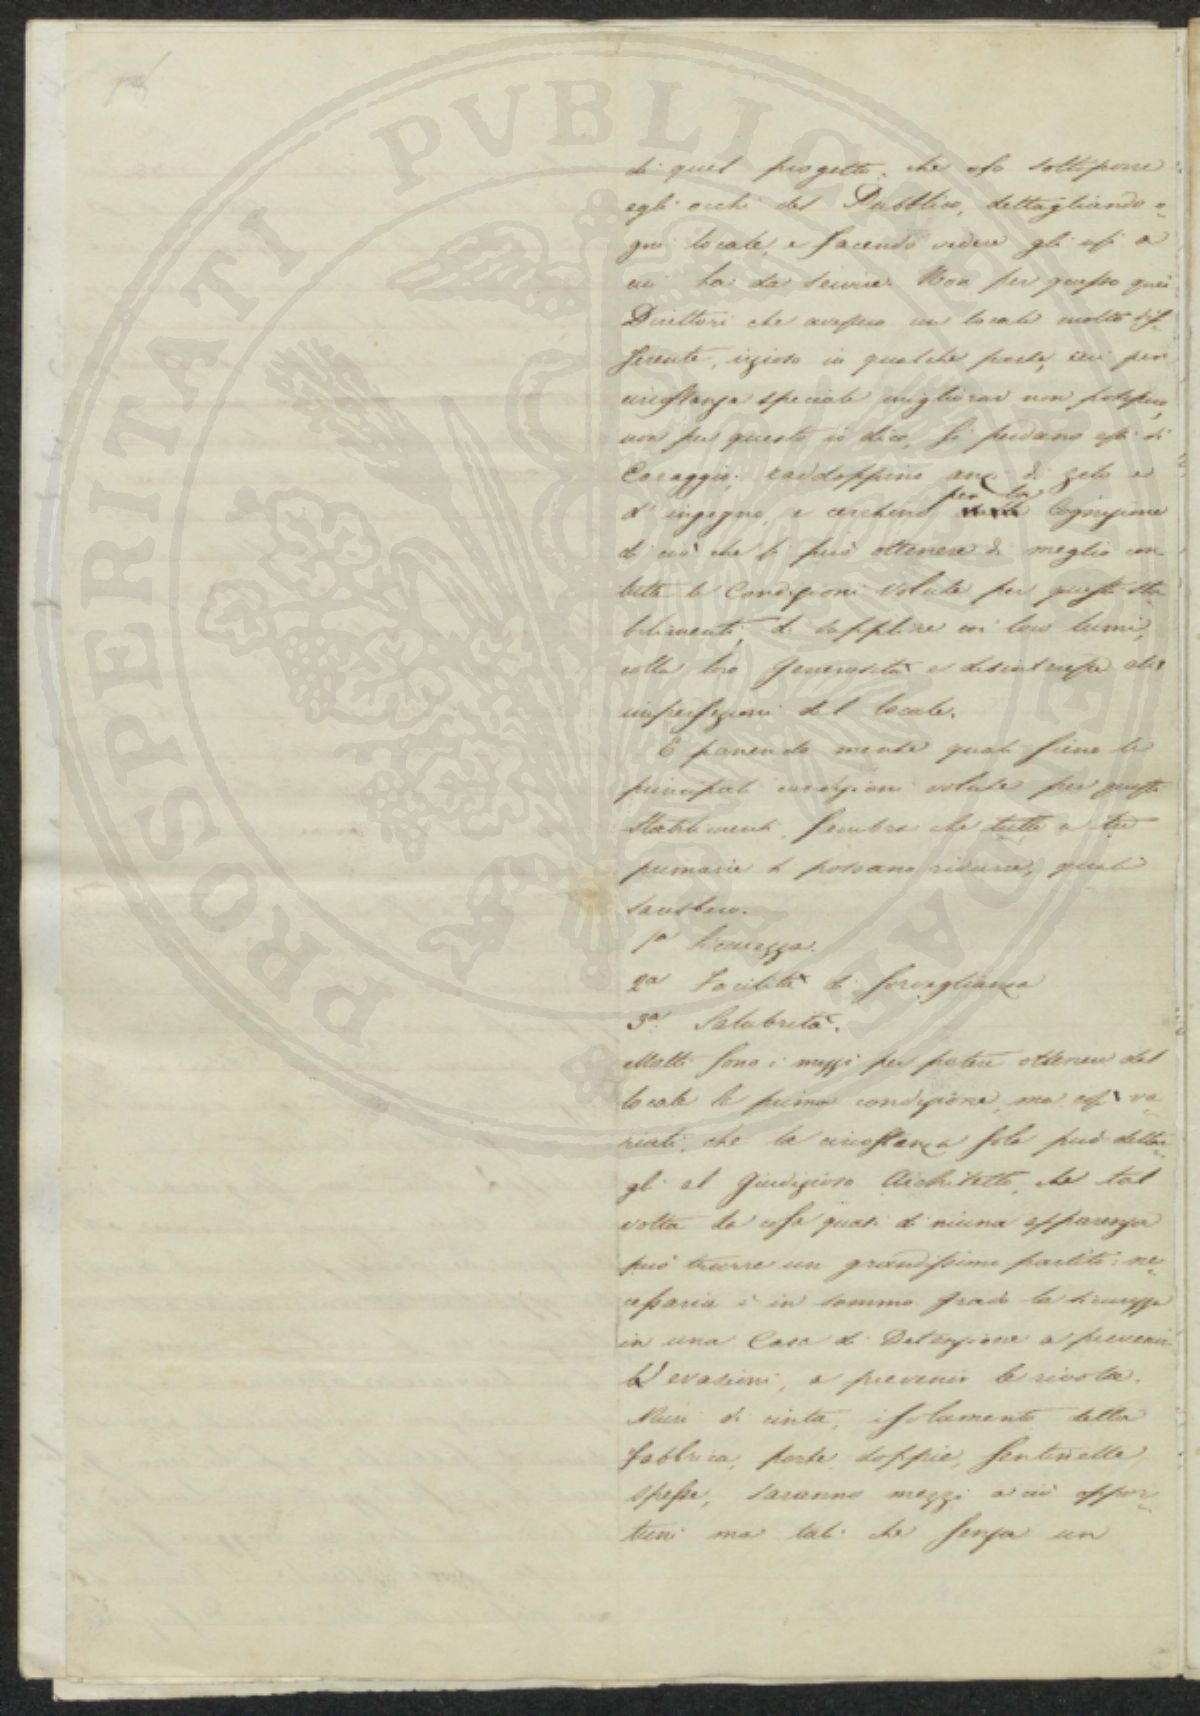 di quel progetto, che oso sottoporre
agli occhi del Pubblico, dettagliando o-
gni locale, e facendo vedere gli usi a
cui ha da servire. Non per questo quei
Direttori che avessero un locale molto dif-
ferente, vizioso in qualche parte, cui per
circostanza speciale migliorar non potessero,
non per questo io dico, si perdano essi di
Coraggio; raddoppino anzi di zelo e
d'ingegno, e cerchino per la Cognizione
di ciò che si può ottenere di meglio con
tutte le Condizioni volute per questi sta
bilimenti, di supplire coi loro lumi,
colla loro generosità e disinteresse alle
imperfezioni del locale.
E ponendo mente quali sieno le
principali condizioni volute per questi
Stabilimenti, sembra che tutte a tre
primarie si possano ridurre, quali
sarebbero.
1ª Sicurezza.
2ª Facilità di sorveglianza
3ª Salubrità.
Molti sono i mezzi per poter ottenere dal
locale la prima condizione, ma così va-
riati, che la circostanza sola può dettar-
gli al giudizioso Architetto, che tal
volta da cosa quasi di niuna apparenza
può trarre un grandissimo partito; ne-
cessaria è in sommo grado la sicurezza
in una Casa di Detenzione a prevenir
l'evasioni, a prevenir le rivolte.
Muri di cinta, isolamento della
fabbrica, porte doppie, sentinelle
spesse, saranno mezzi a ciò oppor-
tuni ma tali che senza un
PROSPERITATI PVBLICAE